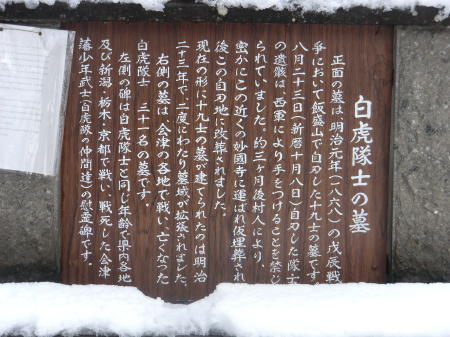 白虎隊士の墓
正面の墓は、明治元年(一八六八)の戊辰戦
争において飯盛山で自刃した十九士の墓です。
八月二十三日(新暦十月八日)自刃した隊士
の遺骸は、西軍により手をつけることを禁じ
られていました。約三ヶ月後村人により、
密かにこの近くの妙國寺に運ばれ仮埋葬され
後この自刃地に改葬されました。
現在の形に十九士の墓が建てられたのは明治
二十三年で、二度にわたり墓域が拡張されました。
右側の墓は、会津の各地で戦い、亡くなった
白虎隊士 三十一名の墓です。
左側の碑は白虎隊士と同じ年齢で県内各地
及び新潟・栃木・京都で戦い、戦死した会津
藩少年武士(白虎隊の仲間達)の慰霊碑です。